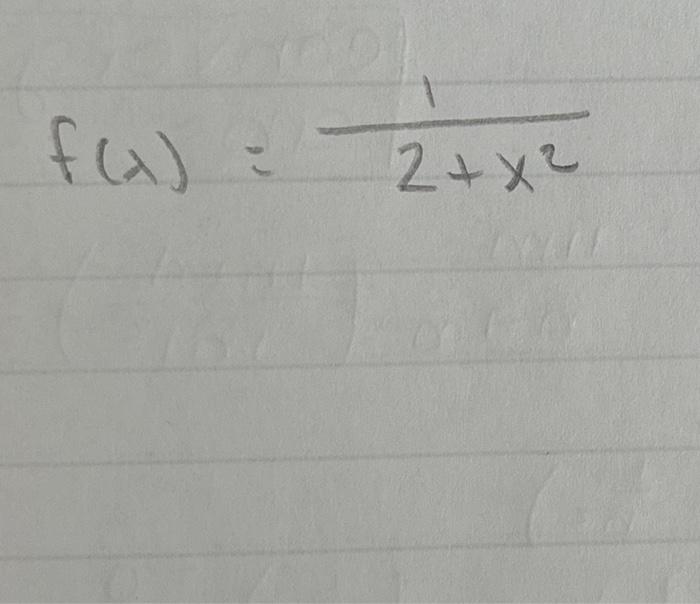 f(x) = 1 / (2 + x²)